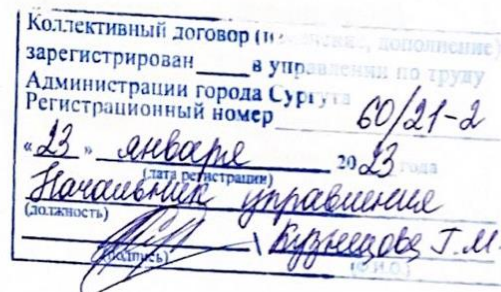 Коллективный договор (изменение, дополнение)
зарегистрирован ____ в управлении по труду
Администрации города Сургута
Регистрационный номер 60/21-2
«23» января 2023 года
(дата регистрации)
Начальник управления
(должность)
\ Кузнецова Г.М.
(подпись) (Ф.И.О.)